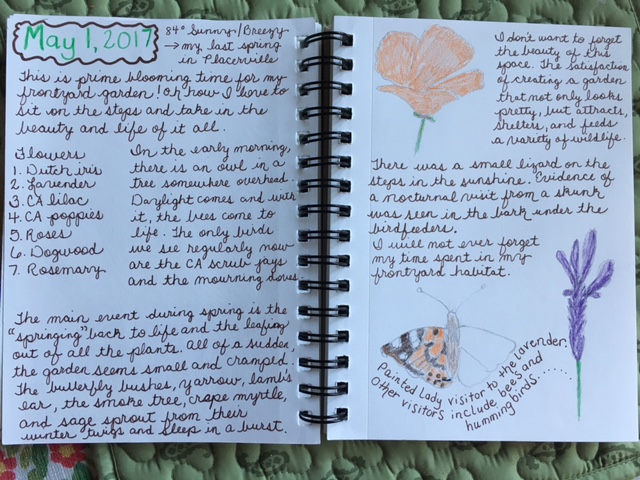 May 1, 2017
84° Sunny/Breezy
→ my last spring
in Placerville
This is prime blooming time for my
frontyard garden! Oh how I love to
sit on the steps and take in the
beauty and life of it all.
Flowers
1. Dutch iris
2. Lavender
3. CA lilac
4. CA poppies
5. Roses
6. Dogwood
7. Rosemary
In the early morning,
there is an owl in a
tree somewhere overhead.
Daylight comes and with
it, the bees come to
life. The only birds
we see regularly now
are the CA scrub jays
and the mourning doves.
The main event during spring is the
"springing" back to life and the leafing
out of all the plants. All of a sudden,
the garden seems small and cramped.
The butterfly bushes, yarrow, lamb's
ear, the smoke tree, crape myrtle,
and sage sprout from their
winter twigs and sleep in a burst.
I don't want to forget
the beauty of this
space. The satisfaction
of creating a garden
that not only looks
pretty, but attracts,
shelters, and feeds
a variety of wildlife.
There was a small lizard on the
steps in the sunshine. Evidence of
a nocturnal visit from a skunk
was seen in the bark under the
birdfeeders.
I will not ever forget
my time spent in my
frontyard habitat.
Painted Lady visitor to the lavender.
Other visitors include bees and
hummingbirds......